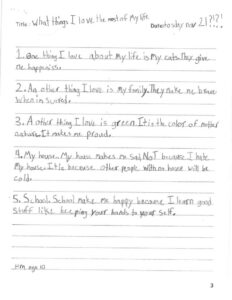 Title: What things I love the most of my life
Date: today nov 21?!?!
1. One thing I love about my life is my cats. They give
me happiness.
2. An other thing I love is my family. They make me brave
when in scared.
3. A other thing I love is green. It is the color of mother
nature. It makes me proud.
4. My house. My house makes me sad, NOT because I hate
my house. It is because other people with no house will be
cold.
5. School. School make me happy because I learn good
stuff like keeping your hands to your self.
HM age 10
3